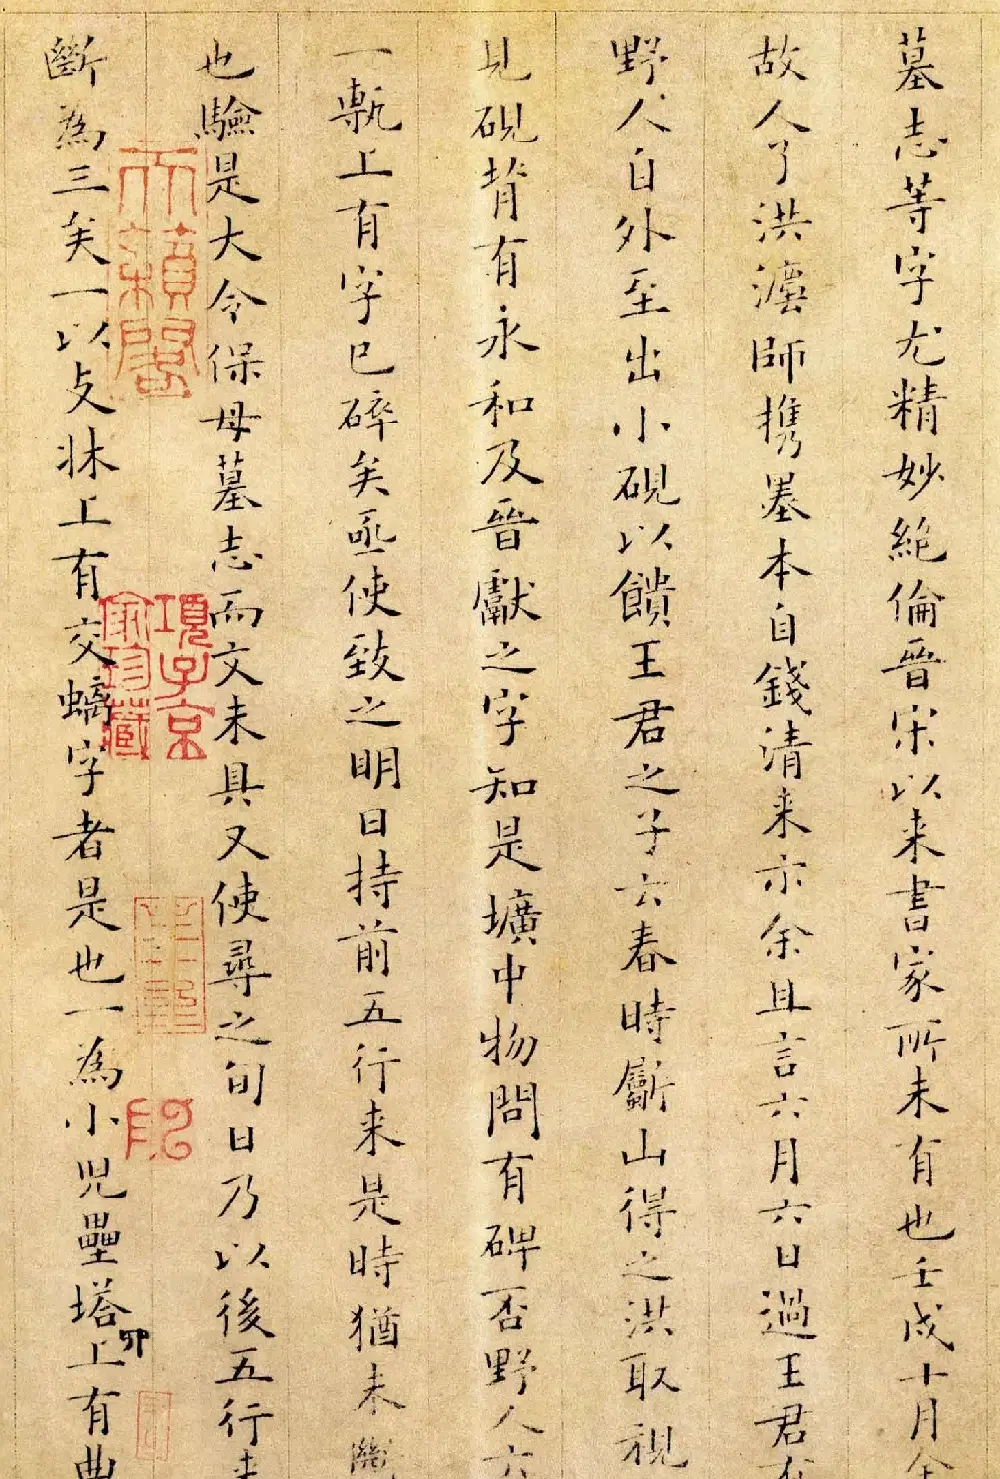 墓志等字尤精妙絶倫晉宋以来書家所未有也壬戌十月余
故人了洪漕師携墨本自錢清来示余且言六月六日過王君有
野人自外至出小硯以饋王君之子六春時斸山得之洪取視
見硯背有永和及晉獻之字知是壙中物問有碑否野人云
一甎上有字已碎矣亟使致之明日持前五行来是時猶未斷
也驗是大令保母墓志而文未具又使尋之旬日乃以後五行来
斷為三矣一以支牀上有交螭字者是也一為小児壘塔上有曲
天籟閣
項子京家珍藏